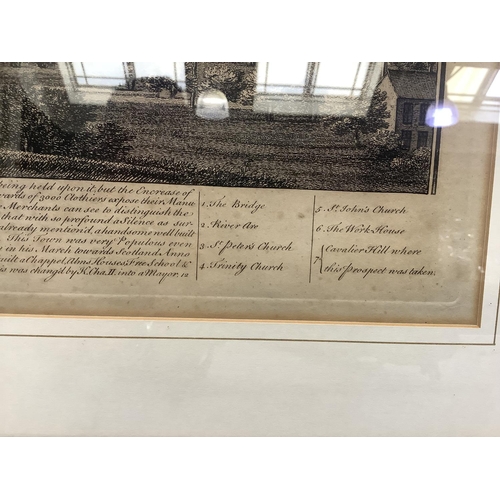 being held upon it, but the Encrease of
wards of 3000 Clothiers expose their Manu
Merchants can see to distinguish the
that with so profound a Silence as sur-
already mention'd, a handsome well built
This Town was very Populous even
in his March towards Scotland. Anno
built a Chappel, Alms Houses, Free School &c
was chang'd by K. Cha. II. into a Mayor. 12
1. The Bridge
2. River Are
3. St. Peter's Church
4. Trinity Church
5. St. John's Church
6. The Work House
7. Cavalier Hill where
this Prospect was taken.